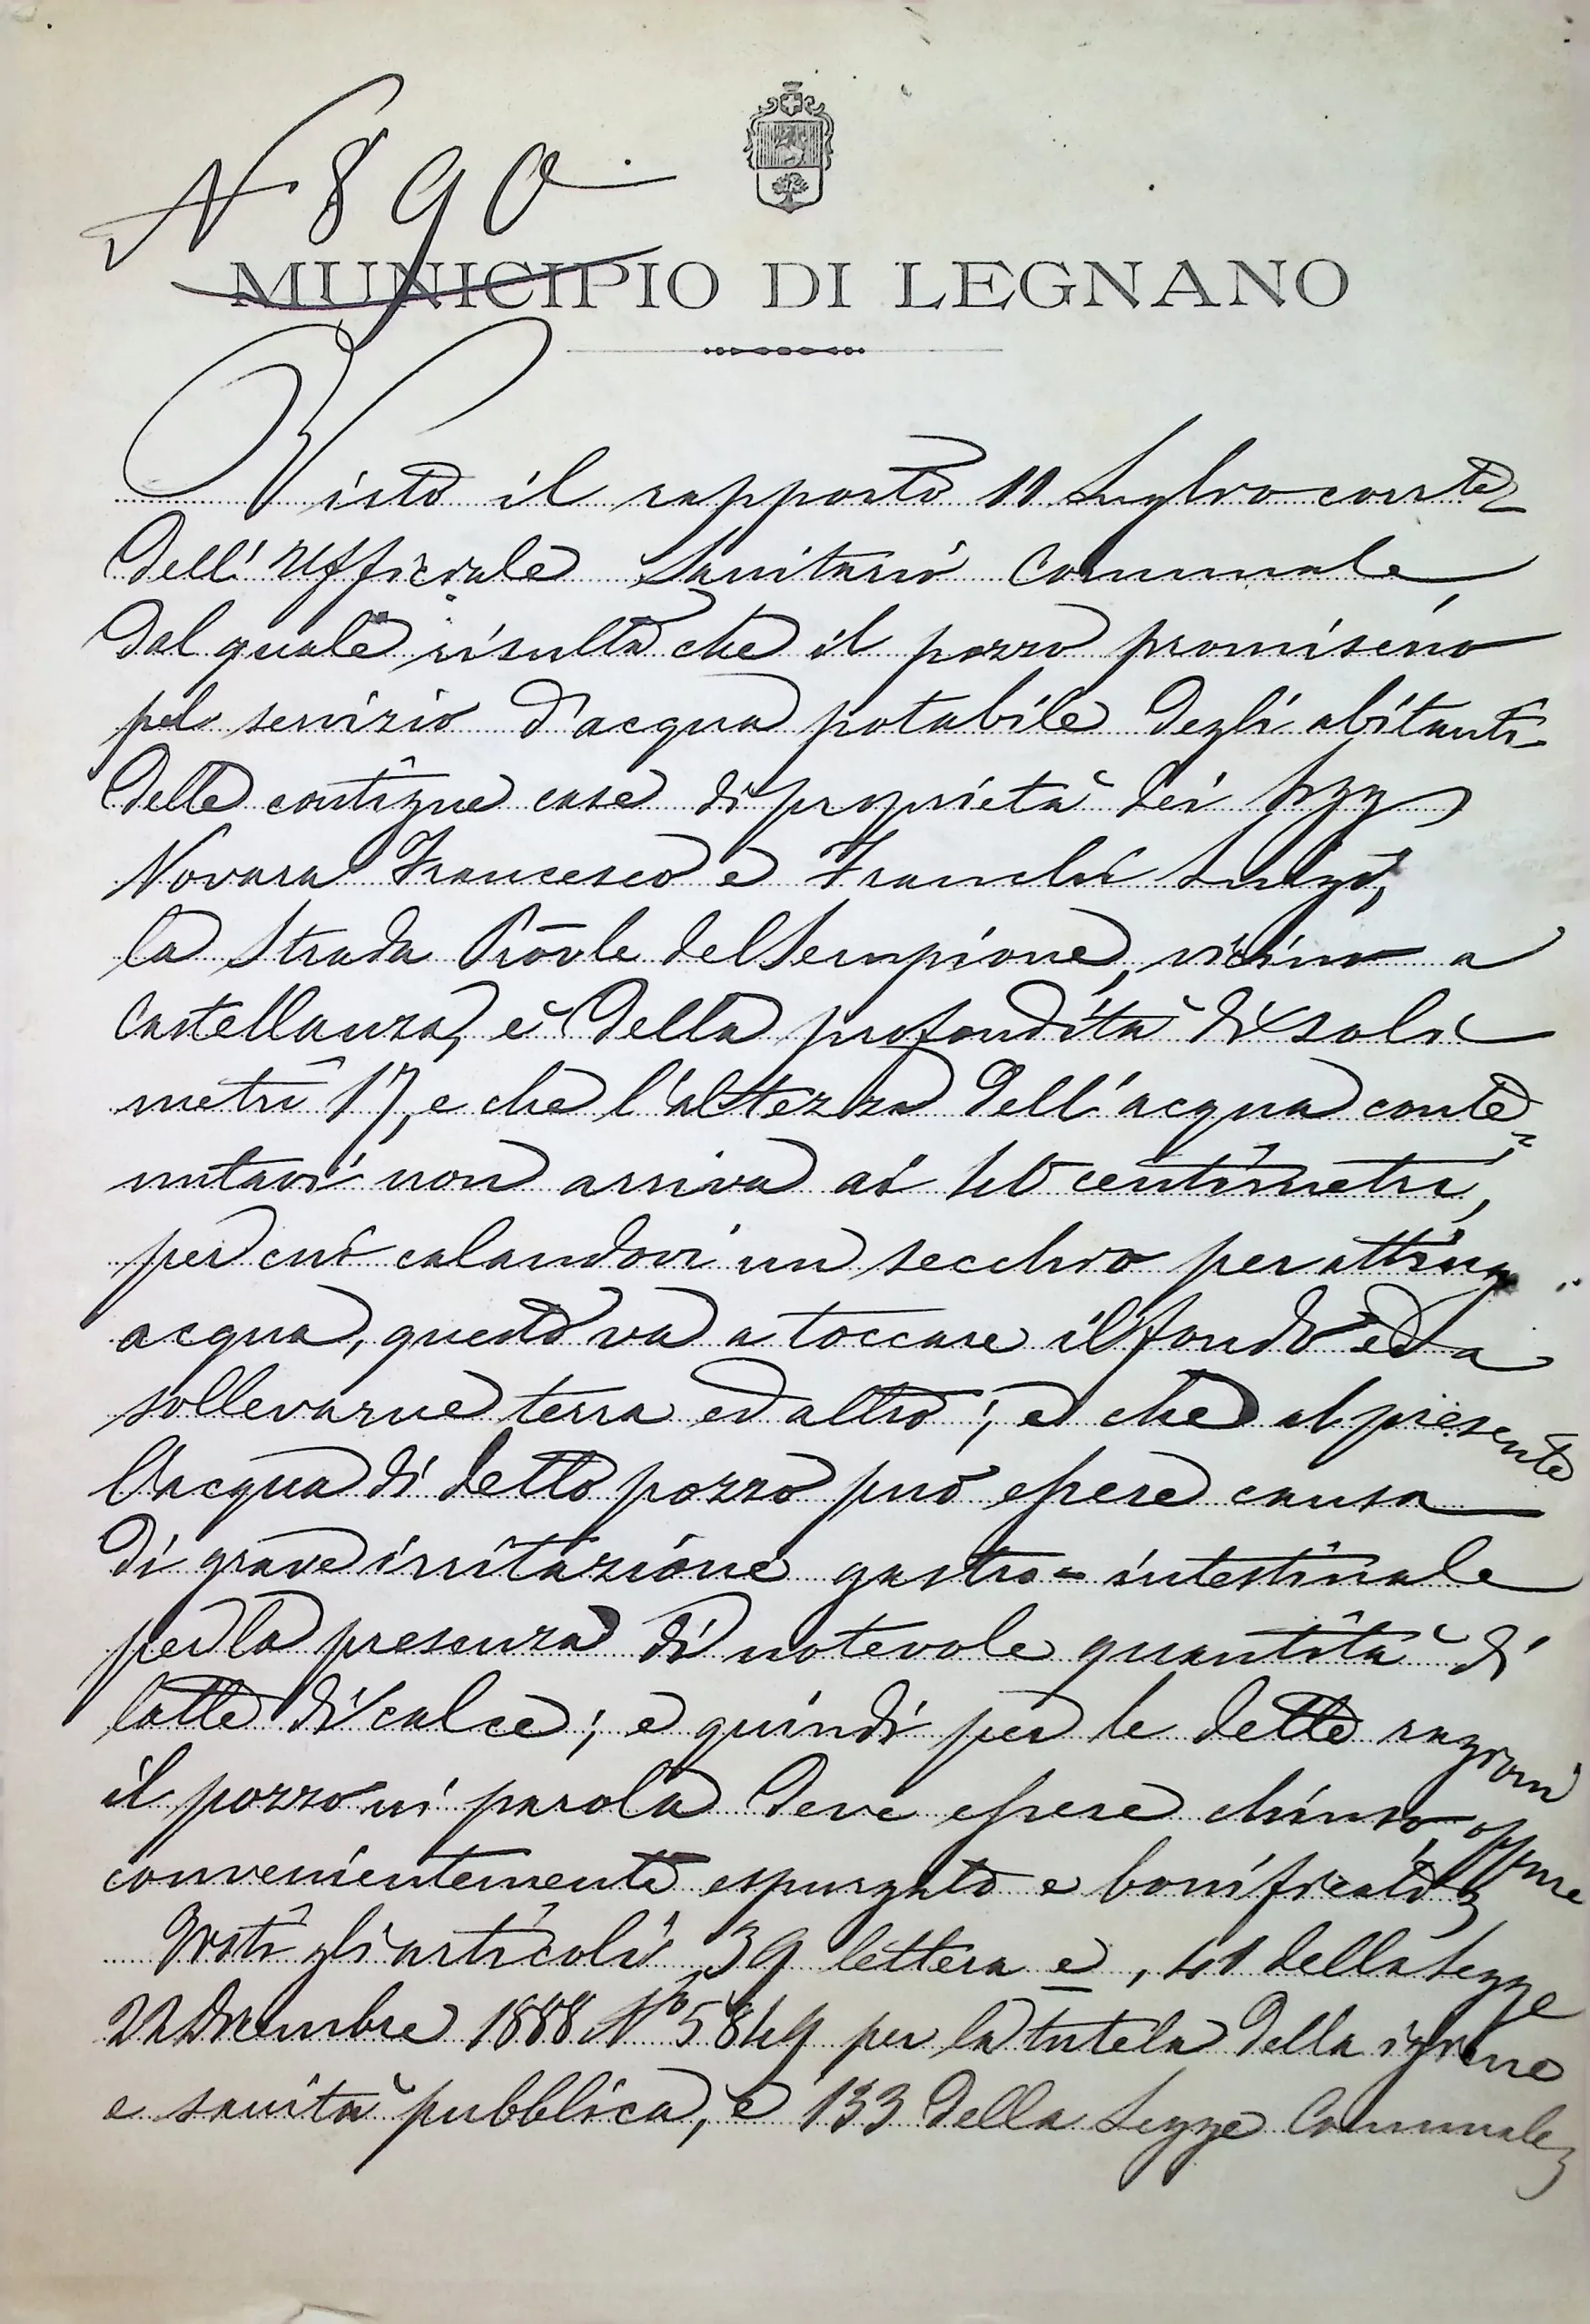 N 890
MUNICIPIO DI LEGNANO
Visto il rapporto 11 Luglio corrte
dell'Ufficiale Sanitario Comunale,
dal quale risulta che il pozzo promiscuo
pel servizio d'acqua potabile degli abitanti
delle contigue case di proprietà dei Sigg
Novara Francesco e Franchi Luigi,
la Strada Provle del Sempione, vicino a
Castellanza, è della profondità di soli
metri 17, e che l'altezza dell'acqua conte=
nutavi non arriva ai 40 centimetri,
per cui calandovi un secchio per
acqua, questo va a toccare il fondo ed a
sollevarne terra ed altro; e che al presente
l'acqua di detto pozzo può essere causa
di grave irritazione gastro=intestinale
per la presenza di notevole quantità di
latte di calce; e quindi per le dette ragioni
il pozzo in parola deve essere chiuso, oppure
convenientemente espurgato e bonificato;
Visti gli articoli 39 lettera e, 41 della Legge
22 Dicembre 1888 No 5849 per la tutela della igiene
e sanità pubblica, e 133 della Legge Comunale